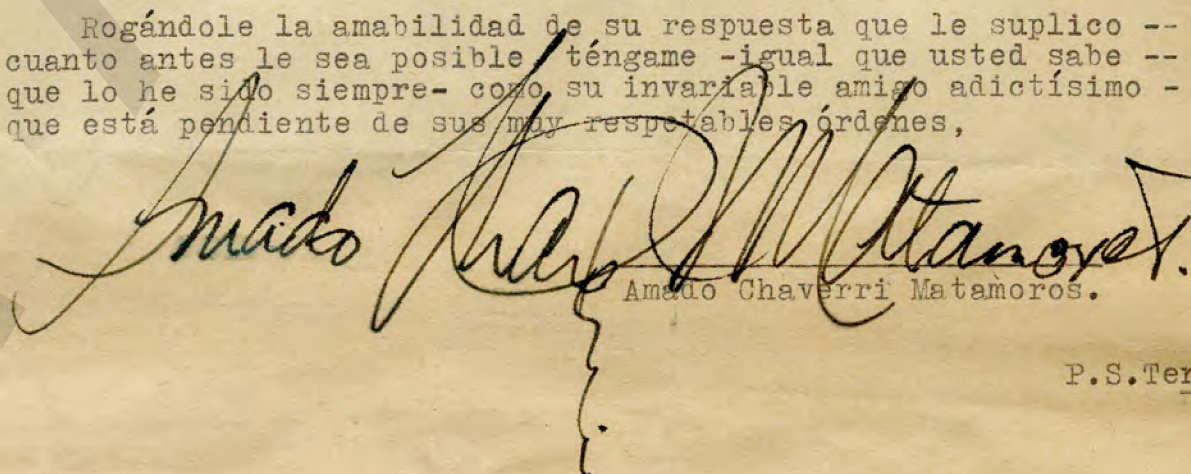 Rogándole la amabilidad de su respuesta que le suplico --
cuanto antes le sea posible, téngame -igual que usted sabe --
que lo he sido siempre- como su invariable amigo adictísimo -
que está pendiente de sus muy respetables órdenes,
Amado Chaverri Matamoros.
Amado Chaverri Matamoros.
P.S.Ter